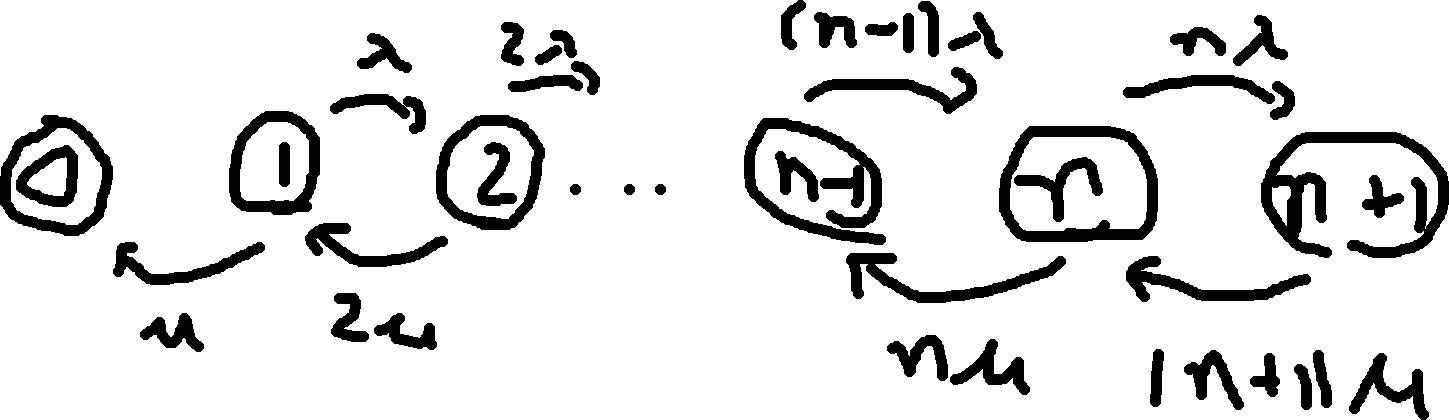 λ 2λ (n-1)λ nλ
0 1 2 ... n-1 n n+1
μ 2μ nμ (n+1)μ